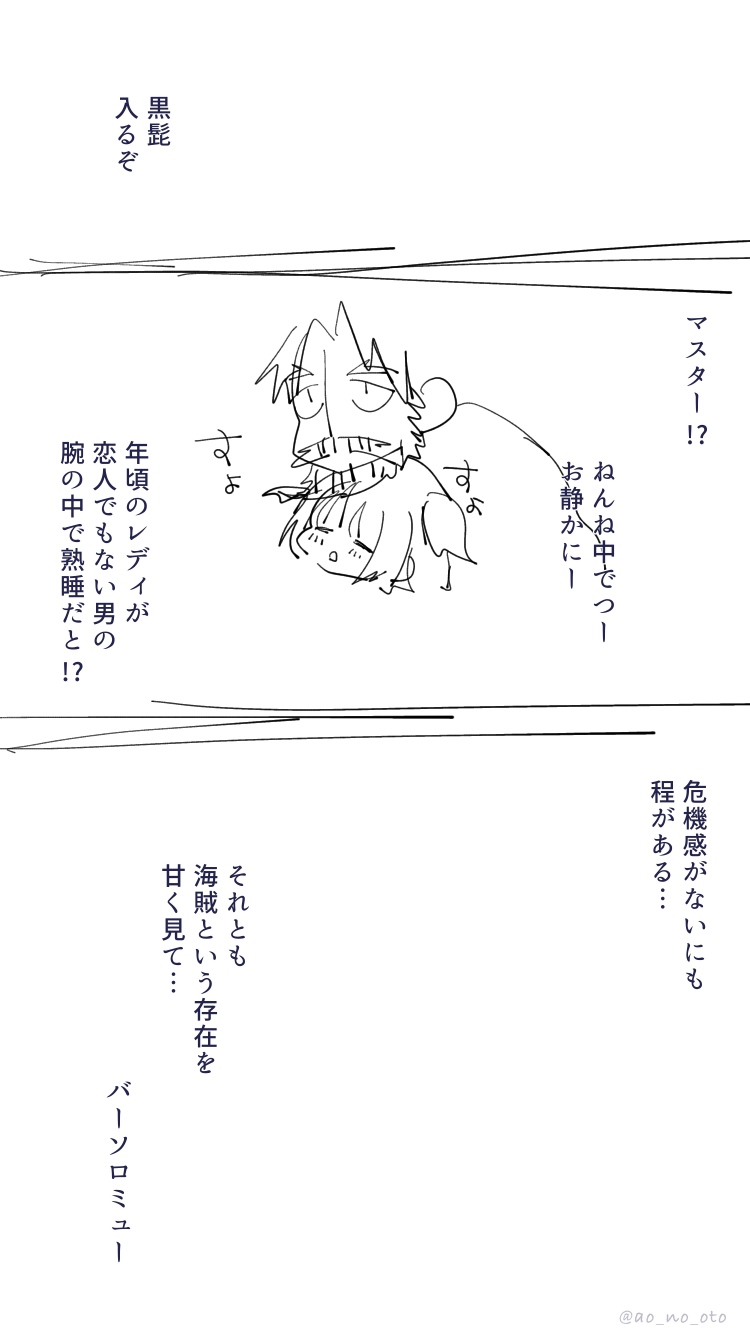 黒髭
入るぞ
マスター!?
ねんね中でつー
お静かにー
すよ
すよ
年頃のレディが
恋人でもない男の
腕の中で熟睡だと!?
危機感がないにも
程がある…
それとも
海賊という存在を
甘く見て…
バーソロミュー
@ao_no_oto